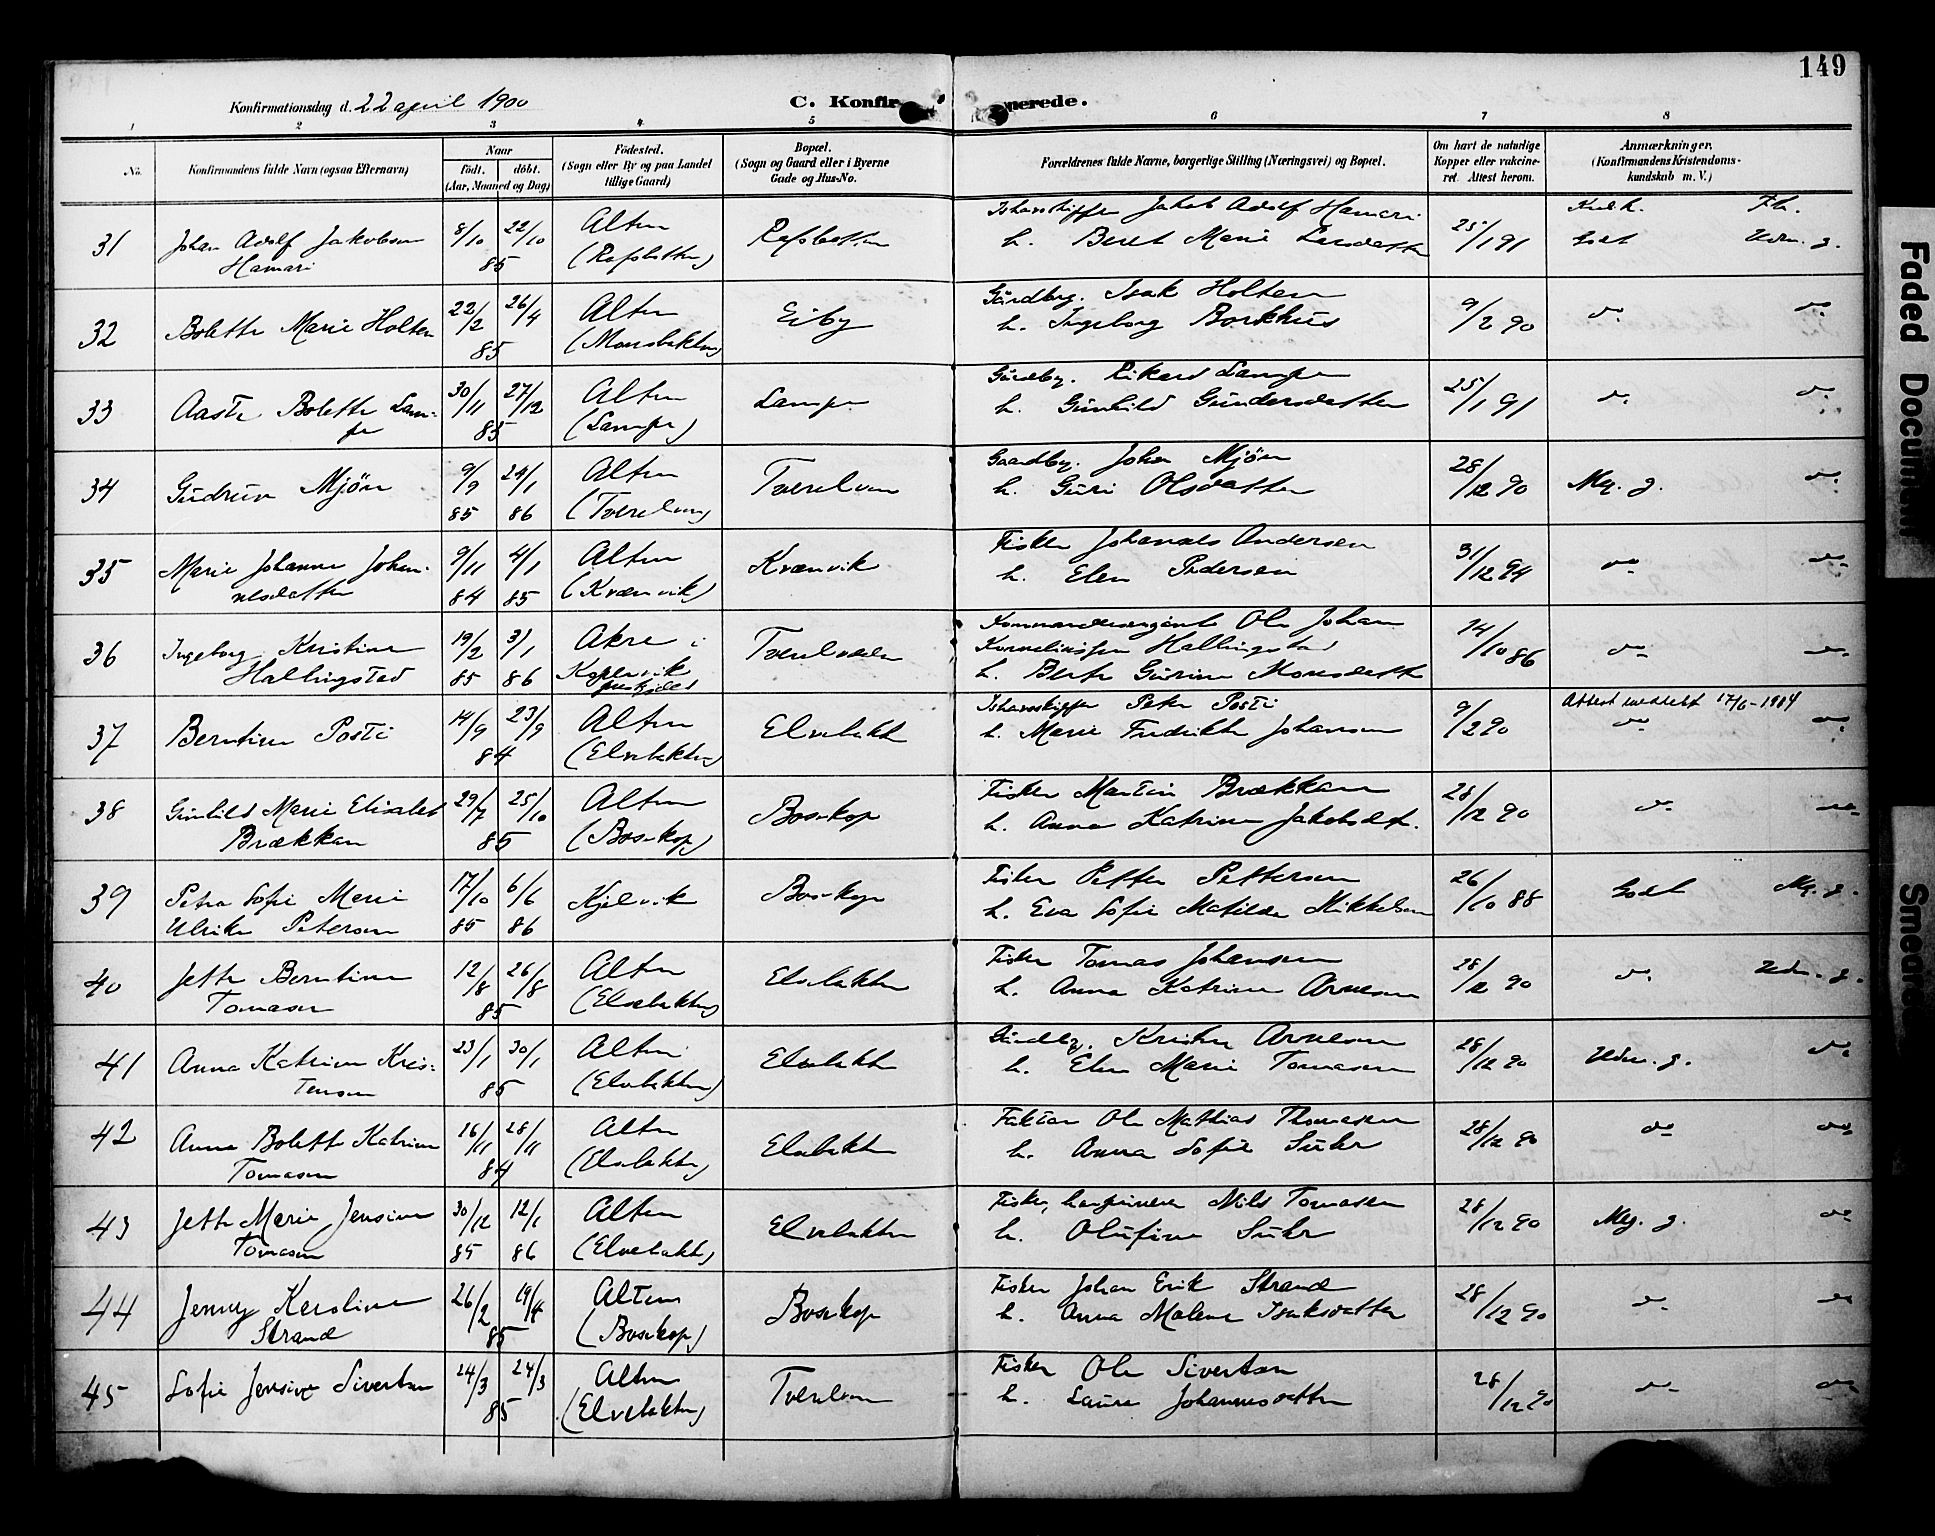 149
Konfirmationsdag d. 22 april 1900
C. Konfir
merede.
1 2 3 4 5 6 7 8
No.
Konfirmandens fulde Navn (ogsaa Efternavn)
Naar
født. døbt.
(Aar, Maaned og Dag)
Fødested.
(Sogn eller By og paa Landet
tillige Gaard)
Bopæl.
(Sogn og Gaard eller i Byerne
Gade og Hus-No.
Forældrenes fulde Navne, borgerlige Stilling (Næringsvei) og Bopæl.
Om havt de naturlige
Kopper eller vakcine-
ret. Attest herom.
Anmærkninger.
(Konfirmandens Kristendoms-
kundskab m. V.)
31 Johan Adolf Jakobsen
Hamari
8/10 22/10
85
Alten
(Rafsbotten)
Rafsbotten
Jakob Adolf Hamari
h. Beret Marie Larsdatter
25/1 91
Godt Udm. g.
32 Bolette Marie Holten
22/2 26/4
85
Alten
Eiby
Gårdbrg. Isak Holten
h. Ingeborg Borkhus
9/2 90
do do
33 Aaste Bolette Lam-
pe
30/11 27/12
85
Alten
(Lampe)
Lampe
Gårdbg. Rikard Lampe
h. Gunhild Gundersdatter
25/1 91
do do
34 Gudrun Mjøen
9/9 24/1
85 86
Alten
(Tverelven)
Tverelven
Gaardbg. Johan Mjøen
h. Guri Olsdatter
28/12 90
Mg. g. do
35 Marie Johanne Johan-
nesdatter
9/11 4/1
84 85
Alten
(Kvænvik)
Kvænvik
Fisker Johannes Andersen
h. Elen Pedersen
31/12 94
do do
36 Ingeborg Kristine
Hallingstad
19/2 3/1
85 86
Akre i
Kopervik
præstegjeld
Tverelvdalen
Kommandersergeant Ole Johan
Korneliussen Hallingstad
h. Berte Gurine Monsdatter
14/10 86
do do
37 Berntine Posti
14/9 23/9
84
Alten
(Elvebakken)
Elvebakk
Ishavsskipper Peter Posti
h. Marie Fredrikke Johansen
9/2 90
Attest meddelt 17/6-1904
do do
38 Gunhild Marie Elisabet
Brækkan
29/7 25/10
85
Alten
(Bosekop)
Bosekop
Fisker Martin Brækkan
h. Anna Katrine Jakobsdt.
28/12 90
do do
39 Petra Sofie Marie
Ulrikke Petersen
17/10 6/6
85 86
Kjelvik
Bosekop
Fisker Petter Pettersen
h. Eva Sofie Matilde Mikkelsen
26/10 88
Godt Mg. g.
40 Jette Berntine
Tomasen
12/8 26/8
85
Alten
(Elvebakken)
Elvebakken
Fisker Tomas Johansen
h. Anna Katrine Arnesen
28/12 90
do Udm. g.
41 Anna Katrine Kris-
tensen
23/1 30/1
85
Alten
(Elvebakken)
Elvebakken
Gårdbg. Kristen Arnesen
h. Elen Marie Tomasen
28/12 90
Udm. g. do
42 Anna Bolette Katrine
Tomasen
16/11 28/11
84
Alten
(Elvebakken)
Elvebakken
Faktor Ole Mathias Thomassen
h. Anna Sofie Suhr
28/12 90
do do
43 Jette Marie Jensine
Tomasen
30/12 12/1
85 86
Alten
(Elvebakk)
Elvebakken
Fisker, Nils Tomasen
h. Olufine Suhr
28/12 90
Meg. g. do
44 Jenny Karoline
Strand
26/2 19/4
85
Alten
(Bosekop)
Bosekop
Fisker Johan Erik Strand
h. Anna Malene Isaksdatter
28/12 90
do do
45 Sofie Jensine Sivertsen
24/3 24/3
85
Alten
(Elvebakken)
Tverelven
Fisker Ole Sivertsen
h. Laura Johannesdatter
28/12 90
do do
Faded Document
Smeared